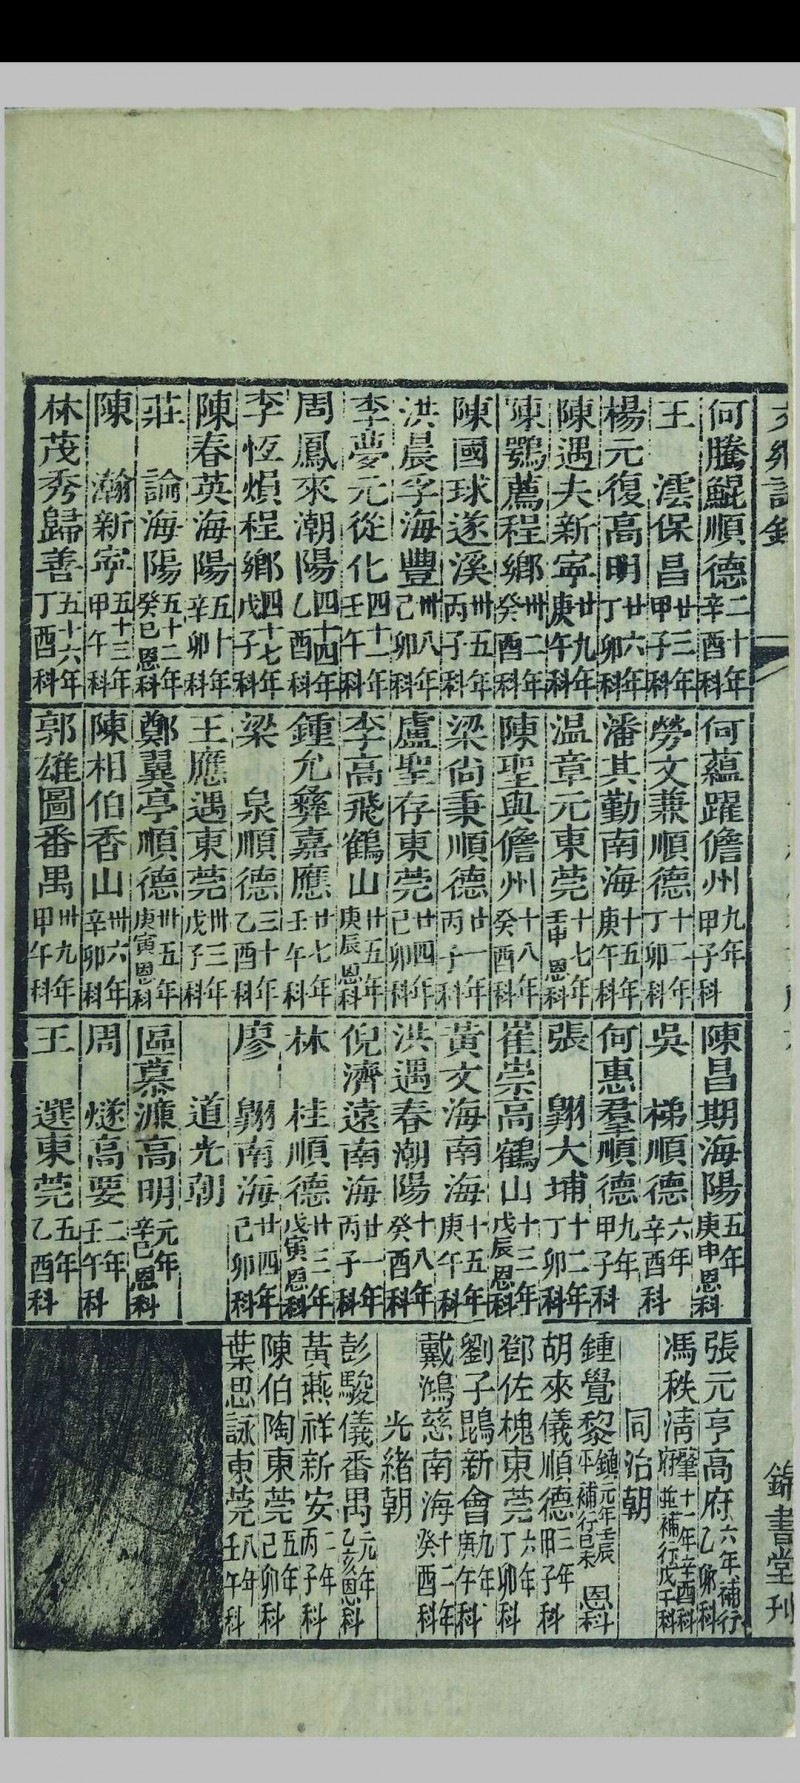 何騰鯤順德二十年辛酉科
王　澐保昌廿三年甲子科
楊元復高明廿六年丁卯科
陳遇夫新寧廿九年庚午科
陳鶚薦程鄉卅二年癸酉科
陳國球遂溪卅五年丙子科
洪晨孚海豐卅八年己卯科
李夢元從化四十一年壬午科
周鳳來潮陽四十四年乙酉科
李恆熉程鄉四十七年戊子科
陳春英海陽五十年辛卯科
莊　論海陽五十二年癸巳恩科
陳　瀚新寧五十三年甲午科
林茂秀歸善五十六年丁酉科
何蘊躍儋州九年甲子科
勞文兼順德十二年丁卯科
潘其勤南海十五年庚午科
温章元東莞十七年壬申恩科
陳聖與儋州十八年癸酉科
梁尚秉順德廿一年丙子科
盧聖存東莞廿四年己卯科
李高飛鶴山廿五年庚辰恩科
鍾允彝嘉應廿七年壬午科
梁　泉順德三十年乙酉科
王應遇東莞卅三年戊子科
鄭翼亭順德卅五年庚寅恩科
陳相伯香山卅六年辛卯科
郭雄圖番禺卅九年甲午科
陳昌期海陽五年庚申恩科
吳　梯順德六年辛酉科
何惠羣順德九年甲子科
張　翱大埔十二年丁卯科
崔崇高鶴山十三年戊辰恩科
黃文海南海十五年庚午科
洪遇春潮陽十八年癸酉科
倪濟遠南海廿一年丙子科
林　桂順德廿三年戊寅恩科
廖　翱南海廿四年己卯科
道光朝
區慕濂高明元年辛巳恩科
周　燧高要二年壬午科
王　選東莞五年乙酉科
張元亨高府六年補行乙卯科
馮秩清肇府十一年辛酉科並補行戊午科
同治朝
鍾覺黎鎮平元年壬辰補行己未恩科
胡來儀順德三年甲子科
鄧佐槐東莞六年丁卯科
劉子鵾新會九年庚午科
戴鴻慈南海十二年癸酉科
光緒朝
彭駿儀番禺元年乙亥恩科
黃燕祥新安二年丙子科
陳伯陶東莞五年己卯科
葉思詠東莞八年壬午科
錦書堂刊